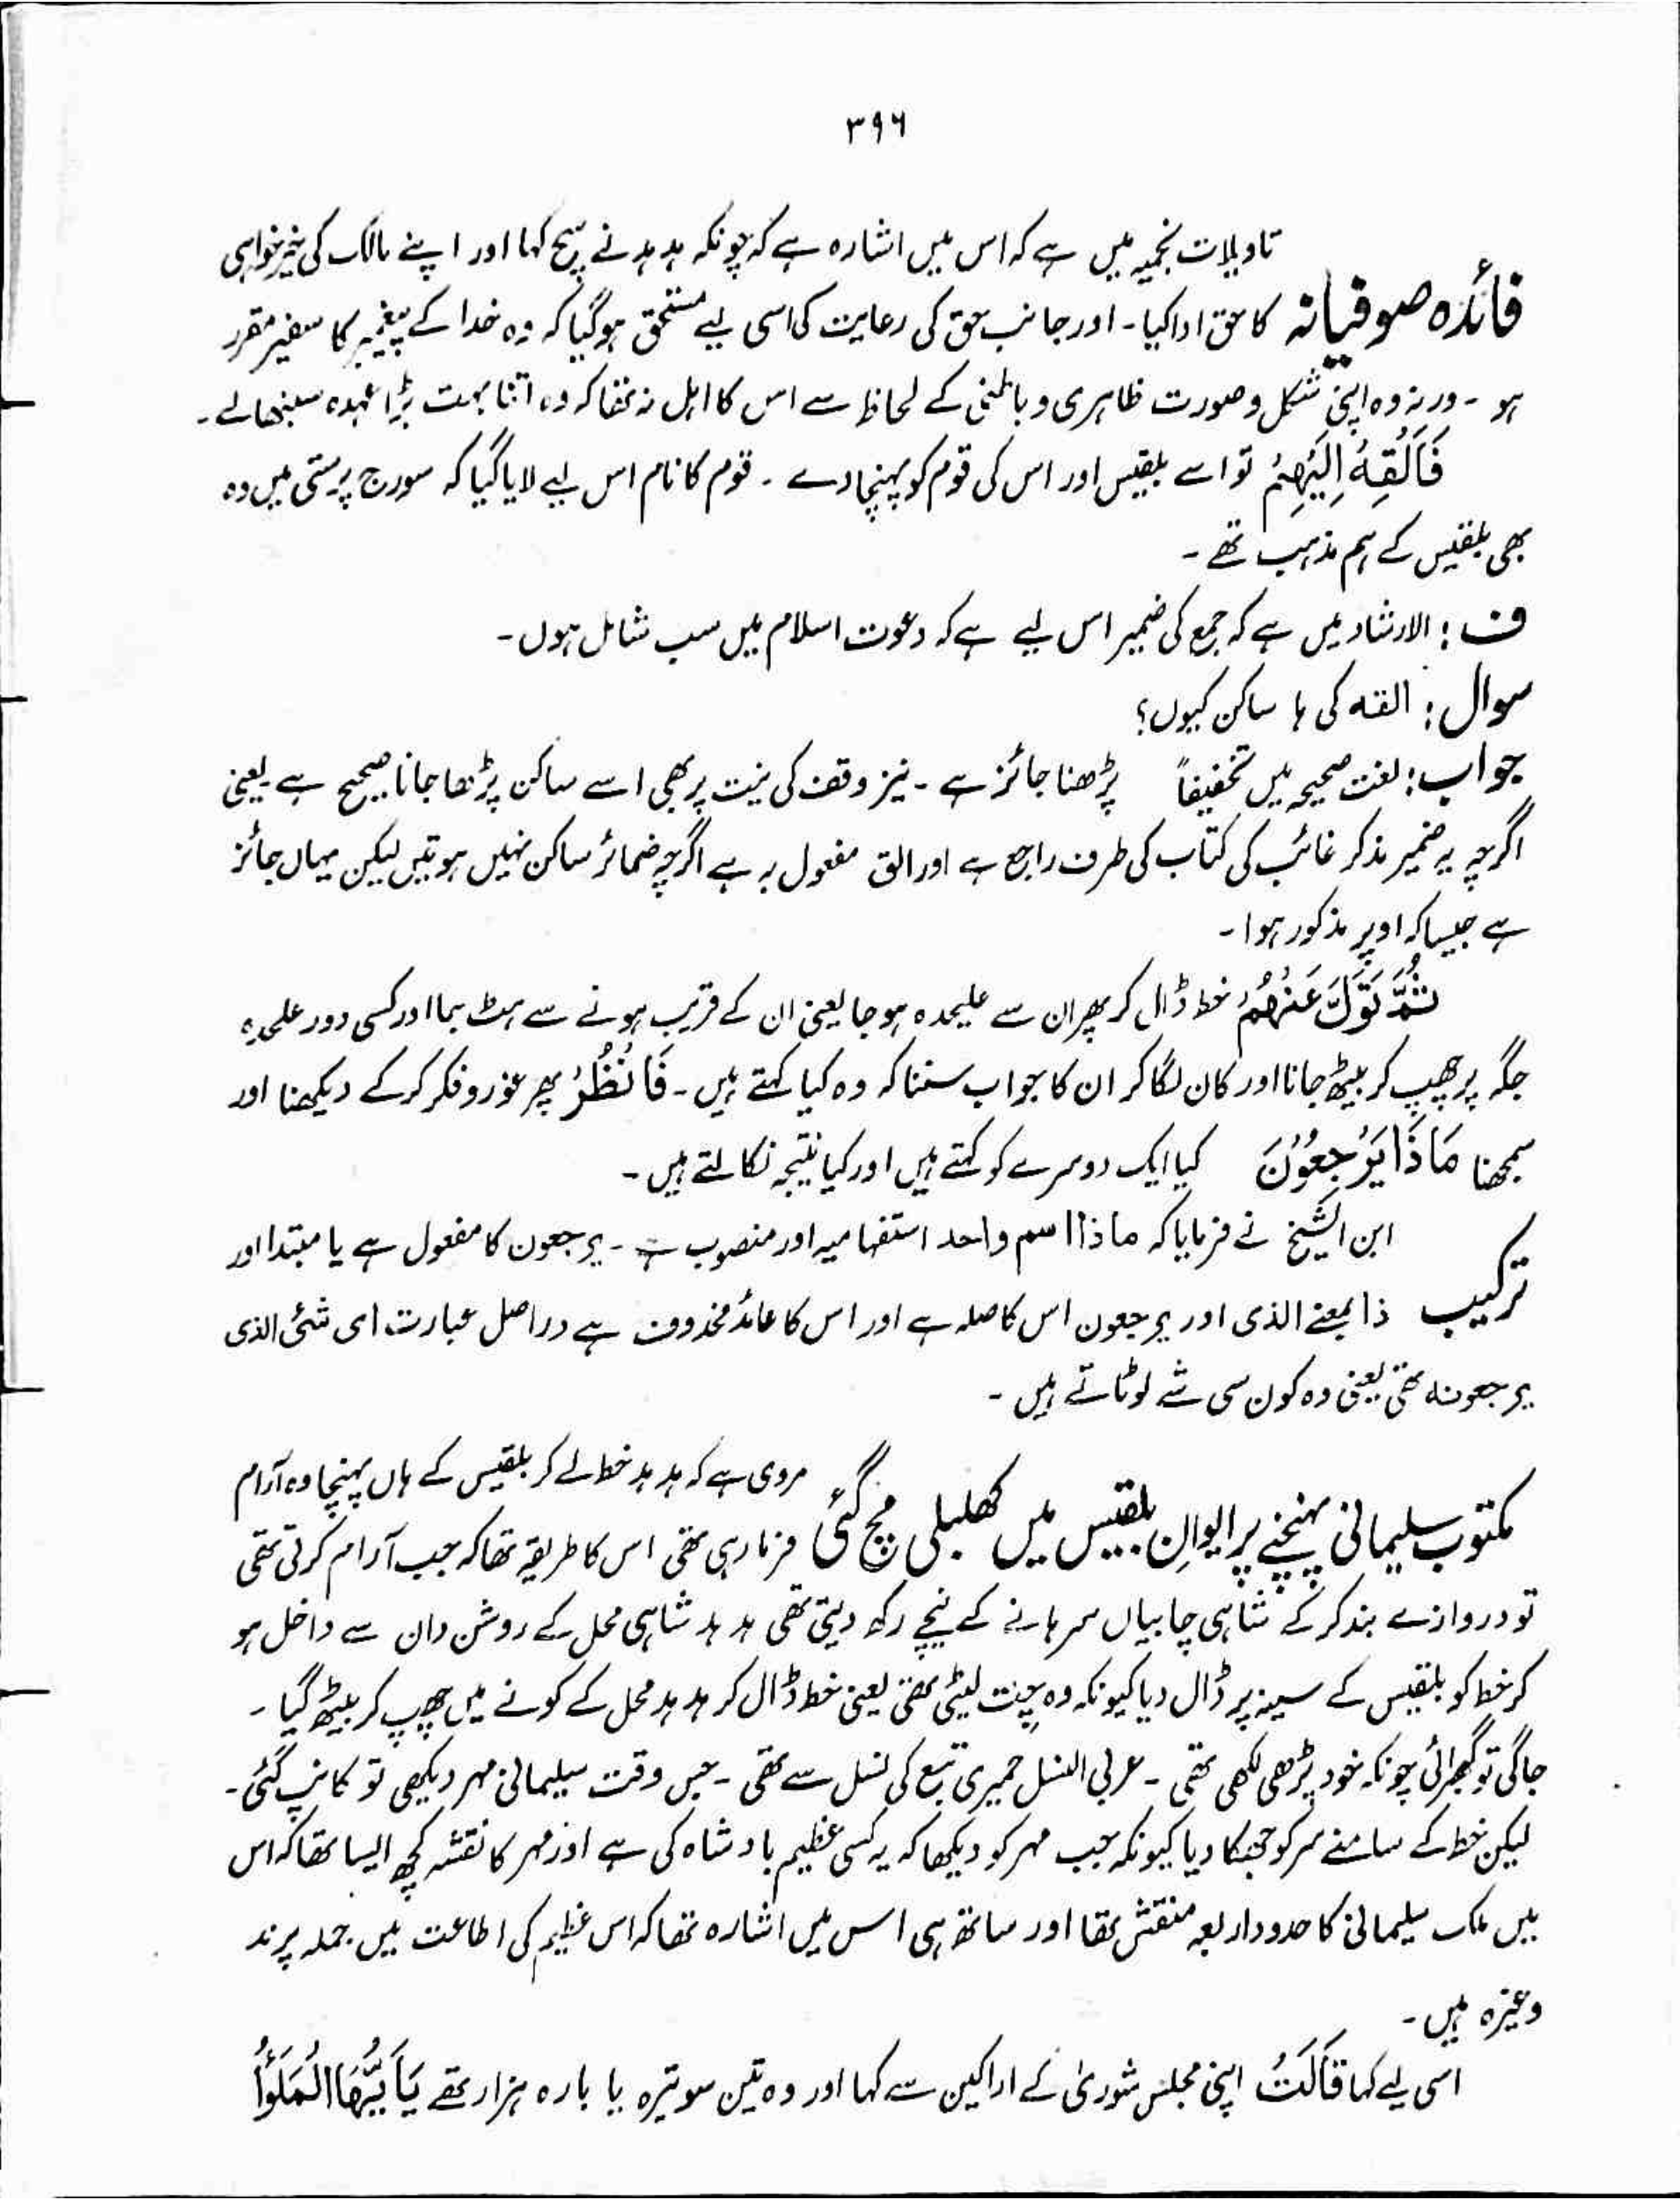 ۳۹۶
تاویلات نجمیہ میں ہے کہ اس میں اشارہ ہے کہ چونکہ ہدہد نے سچ کہا اور اپنے مالک کی خیر خواہی
فائدہ صوفیانہ کا حق ادا کیا۔ اور جانب حق کی رعایت کی اسی لیے مستحق ہوگیا کہ وہ خدا کے پیغمبر کا سفیر مقرر
ہو۔ ورنہ وہ اپنی شکل و صورت ظاہری و باطنی کے لحاظ سے اس کا اہل نہ تھا کہ وہ اتنا بہت بڑا عہدہ سنبھالے۔
فَاَلْقِهْ اِلَیْهِمْ تو اسے بلقیس اور اس کی قوم کو پہنچا دے۔ قوم کا نام اس لیے لایا گیا کہ سورج پرستی میں وہ
بھی بلقیس کے ہم مذہب تھے۔
ف: الارشاد میں ہے کہ جمع کی ضمیر اس لیے ہے کہ دعوت اسلام میں سب شامل ہوں۔
سوال: القہ کی ہا ساکن کیوں؟
جواب: لغت صحیحہ میں تخفیفاً پڑھنا جائز ہے۔ نیز وقف کی نیت پر بھی اسے ساکن پڑھا جانا صحیح ہے یعنی
اگرچہ یہ ضمیر مذکر غائب کی کتاب کی طرف راجع ہے اور الق مفعول بہ ہے اگرچہ ضمائر ساکن نہیں ہوتیں لیکن یہاں جائز
ہے جیسا کہ اوپر مذکور ہوا۔
ثُمَّ تَوَلَّ عَنْهُمْ خط ڈال کر پھر ان سے علیحدہ ہو جا یعنی ان کے قریب ہونے سے ہٹ جا اور کسی دور علیحدہ
جگہ پر چھپ کر بیٹھ جانا اور کان لگا کر ان کا جواب سننا کہ وہ کیا کہتے ہیں۔ فَانْظُرْ پھر غور و فکر کر کے دیکھنا اور
سمجھنا مَاذَا یَرْجِعُوْنَ کیا ایک دوسرے کو کہتے ہیں اور کیا نتیجہ نکالتے ہیں۔
ابن الشیخ نے فرمایا کہ ماذا اسم واحد استفہامیہ اور منصوب ہے۔ یرجعون کا مفعول ہے یا مبتدا اور
ترکیب ذا بمعنے الذی اور یرجعون اس کا صلہ ہے اور اس کا عائد محذوف ہے دراصل عبارت ای شئی الذی
یرجعونہ تھی یعنی وہ کون سی شے لوٹاتے ہیں۔
مروی ہے کہ ہدہد خط لے کر بلقیس کے ہاں پہنچا وہ آرام
مکتوب سلیمانی پہنچنے پر ایوانِ بلقیس میں کھلبلی مچ گئی فرما رہی تھی اس کا طریقہ تھا کہ جب آرام کرتی تھی
تو دروازے بند کر کے شاہی چابیاں سرہانے کے نیچے رکھ دیتی تھی ہدہد شاہی محل کے روشن دان سے داخل ہو
کر خط کو بلقیس کے سینہ پر ڈال دیا کیونکہ وہ چِت لیٹی تھی یعنی خط ڈال کر ہدہد محل کے کونے میں چھپ کر بیٹھ گیا۔
جاگی تو گھبرائی چونکہ خود پڑھی لکھی تھی۔ عربی النسل حمیری تبع کی نسل سے تھی۔ جس وقت سلیمانی مہر دیکھی تو کانپ گئی۔
لیکن خط کے سامنے سر کو جھکا دیا کیونکہ جب مہر کو دیکھا کہ یہ کسی عظیم بادشاہ کی ہے اور مہر کا نقشہ کچھ ایسا تھا کہ اس
میں ملک سلیمانی کا حدود اربعہ منقش تھا اور ساتھ ہی اس میں اشارہ تھا کہ اس عظیم کی اطاعت میں جملہ پرند
وغیرہ ہیں۔
اسی لیے کہا قَالَتْ اپنی مجلس شوریٰ کے اراکین سے کہا اور وہ تین سو تیرہ یا بارہ ہزار تھے یٰۤاَیُّهَا الْمَلَؤُا